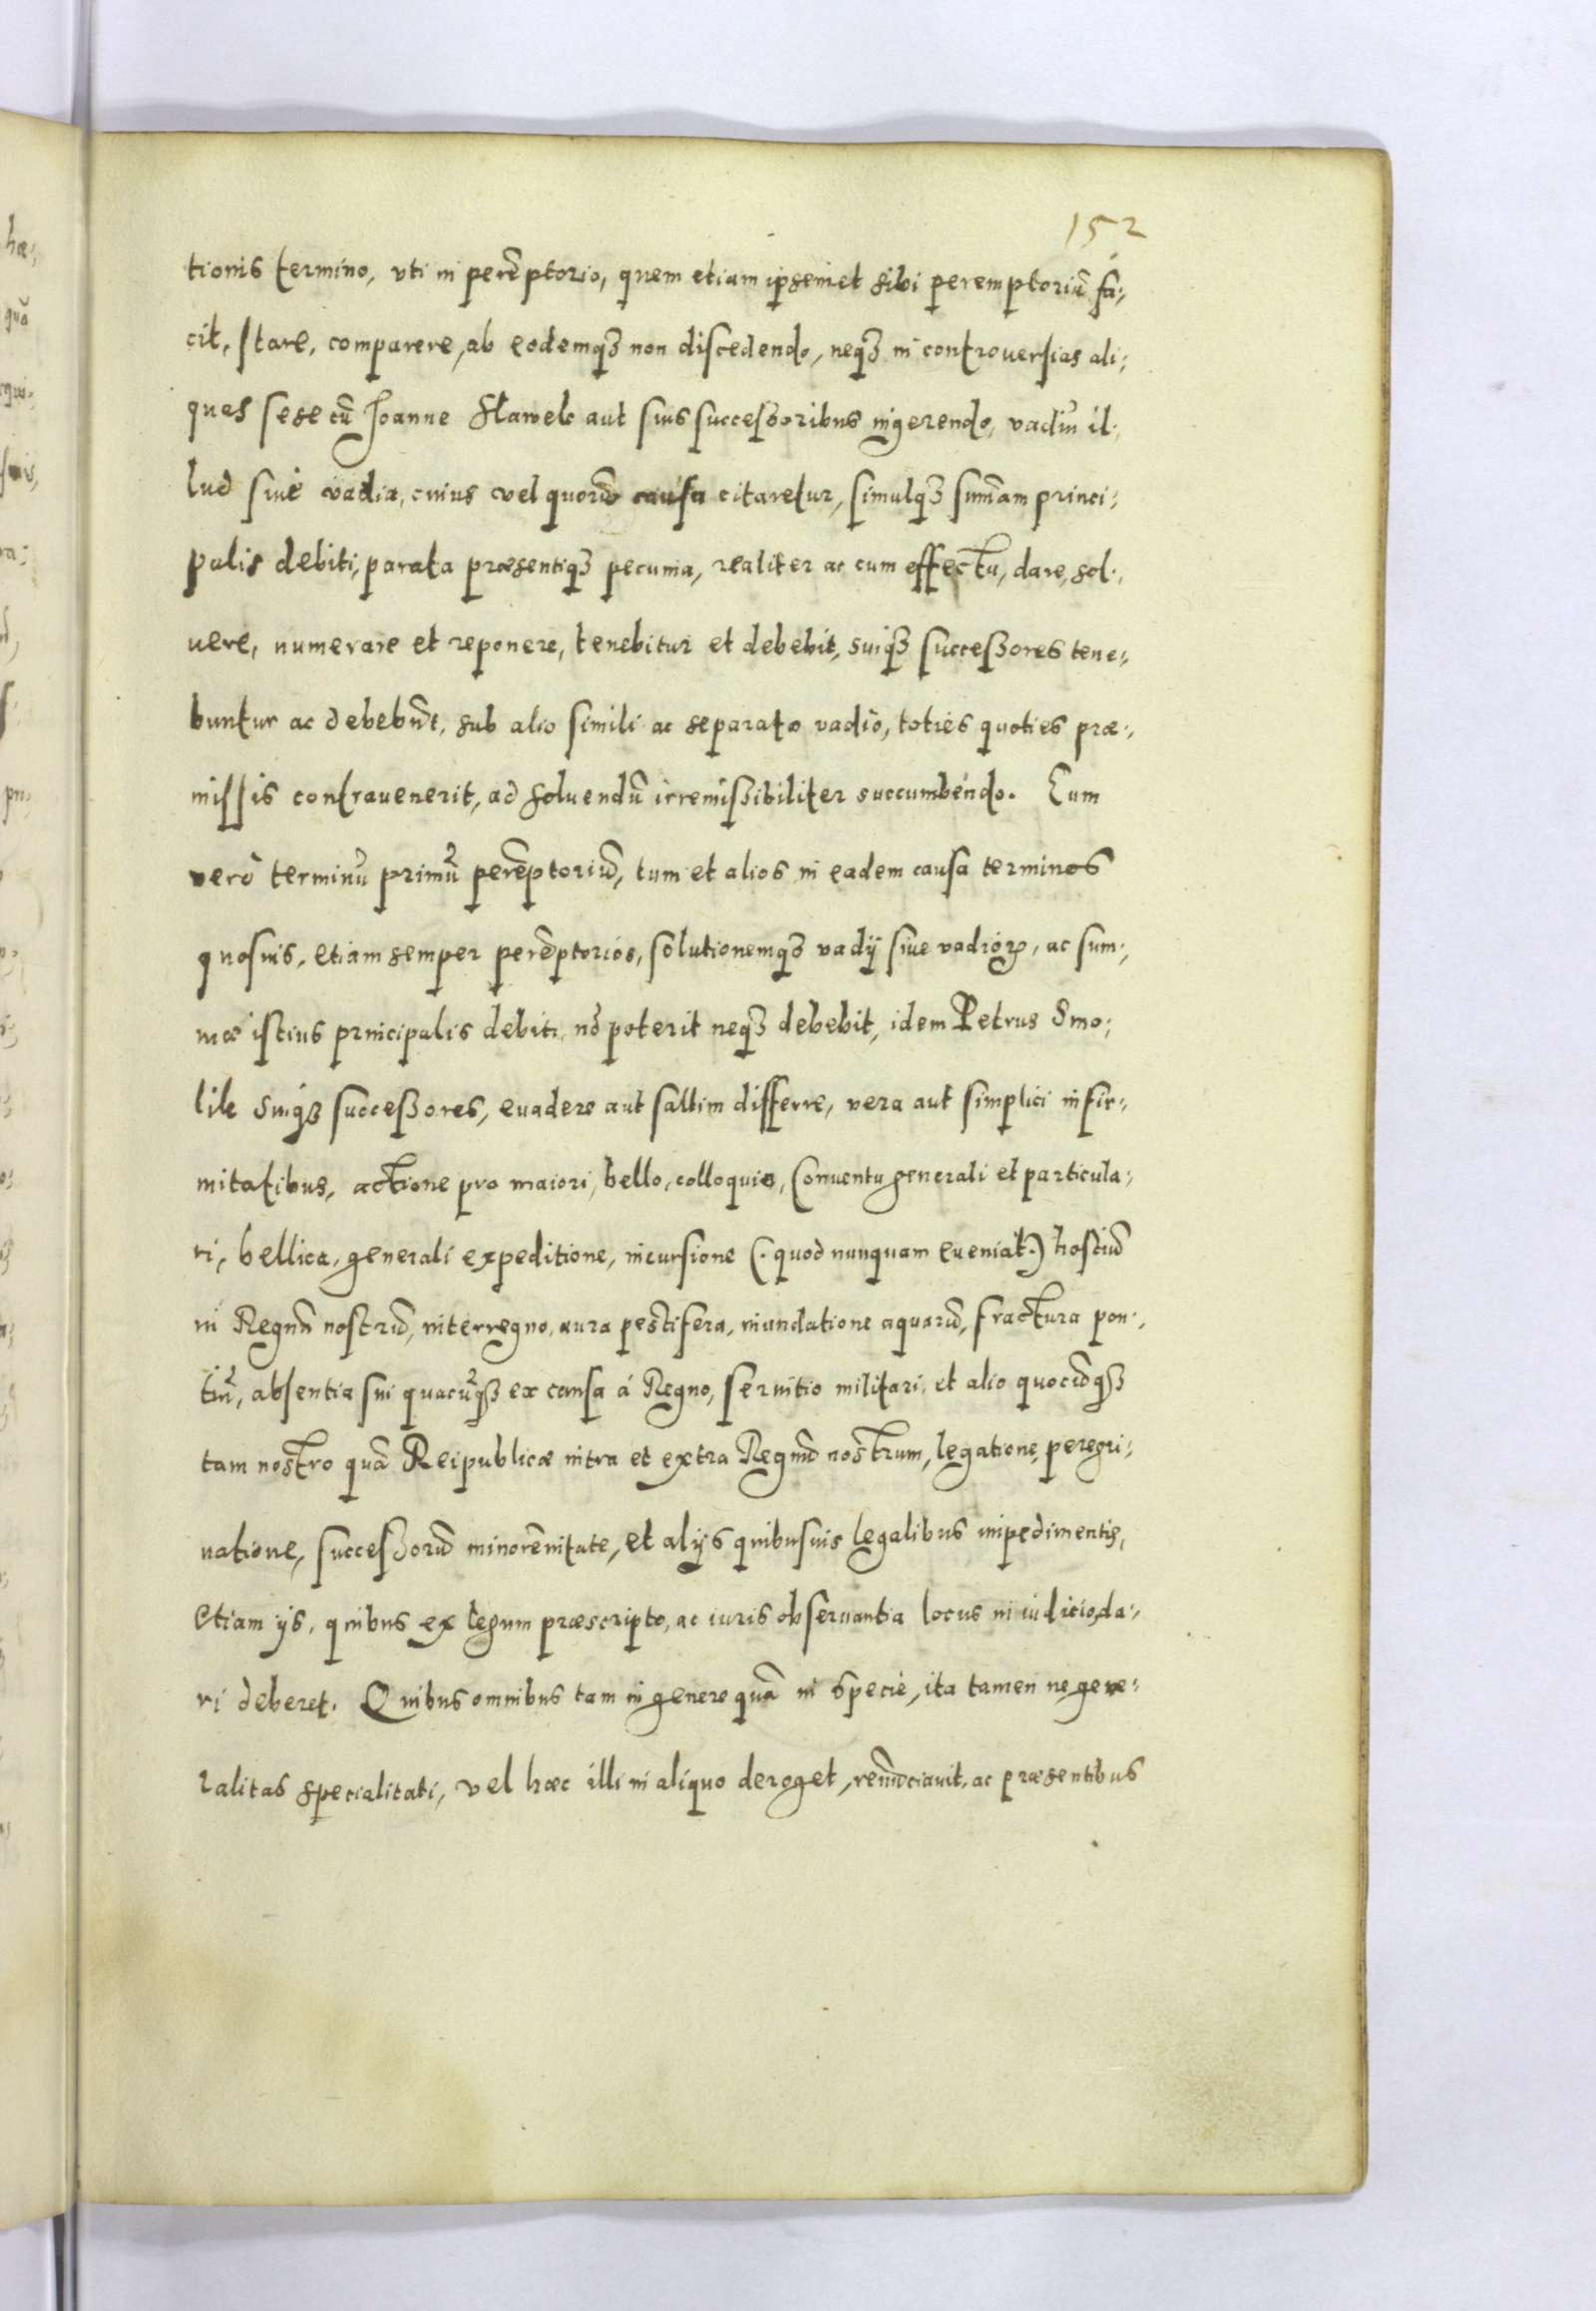 152
tionis termino, vti in perẽptorio, quem etiam ipsemet sibi peremptoriũ fa:
cit, stare, comparere, ab eodemqꝫ non discedendo, neqꝫ in controuersias ali:
quas sese cũ Joanne Hawelc aut suis successoribus ingerendo, vadiũ il:
lud siue vadia, cuius vel quorũ causa citaretur, simulqꝫ sum̃am princi:
palis debiti, parata præsentiqꝫ pecunia, realiter ac cum effectu, dare, sol:
uere, numerare et reponere, tenebitur et debebit, suiqꝫ successores tene:
buntur ac debebũt, sub alio simili ac separato vadio, toties quoties præ:
missis contrauenerit, ad soluendũ irremissibiliter succumbendo. Eum
verò terminũ primũ perẽptoriũ, tum et alios in eadem causa terminos
quosuis, etiam semper perẽptorios, solutionemqꝫ vadij siue vadioꝝ, ac sum:
mæ istius principalis debiti, nõ poterit neqꝫ debebit, idem Petrus Smo:
lik suiqꝫ successores, euadere aut saltim differre, vera aut simplici infir:
mitatibus, actione pro maiori, bello, colloquio, Conuentu generali et particula:
ri, bellica, generali expeditione, incursione (. quod nunquam eueniat .) hostiũ
in Regnũ nostrũ, interregno, aura pestifera, inundatione aquarũ, fractura pon:
tiũ, absentia sui quacũqꝫ ex causa á Regno, seruitio militari, et alio quocũqꝫ
tam nostro quã Reipublicæ intra et extra Regnũ nostrum, legatione, peregri:
natione, successorũ minorẽnitate, et alijs quibusuis legalibus impedimentis,
etiam ijs, quibus ex legum præscripto, ac iuris obseruantia locus in iudicio da:
ri deberet. Quibus omnibus tam in genere quã in specie, ita tamen ne gene:
ralitas specialitati, vel hæc illi in aliquo deroget, renũciauit, ac præsentibus